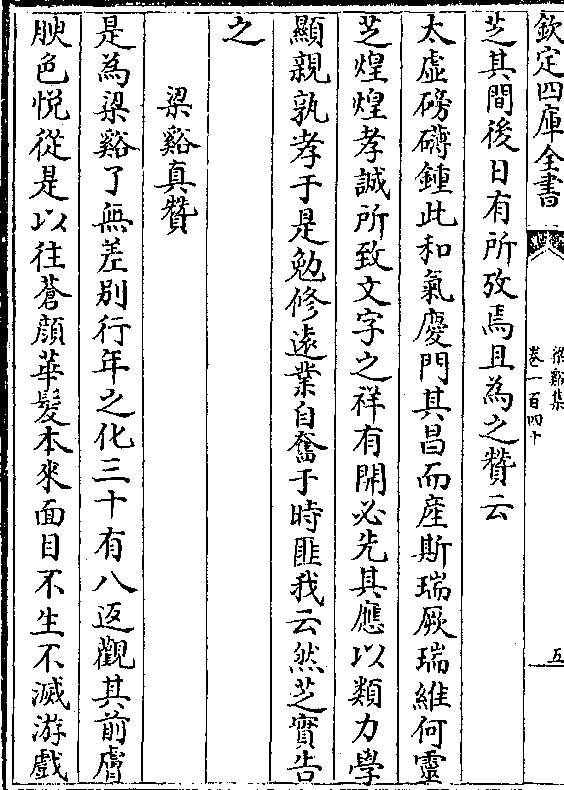 欽定四庫全書
梁谿集
卷一百四十
五
芝其間後日有所攷焉且為之贊云
太虛磅礴鍾此和氣慶門其昌而產斯瑞厥瑞維何靈
芝煌煌孝誠所致文字之祥有開必先其應以類力學
顯親孰孝于是勉修遠業自奮于時匪我云然芝實告
之
梁谿真贊
是為梁谿了無差別行年之化三十有八返觀其前膚
腴色悅從是以往蒼顏華髮本來面目不生不滅游戲